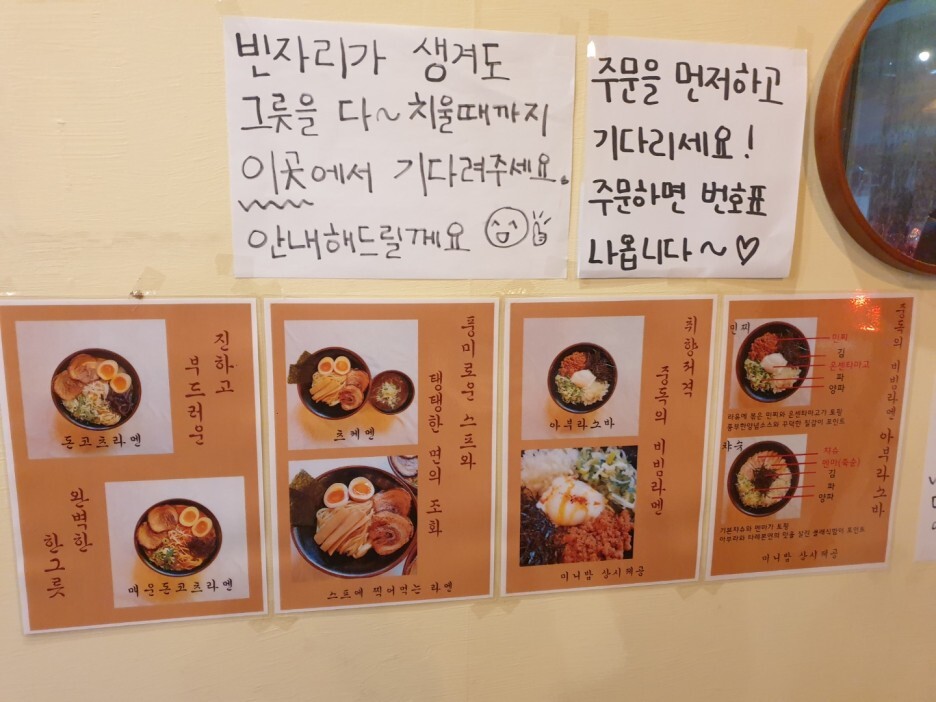 빈자리가 생겨도
그릇을 다~치울때까지
이곳에서 기다려주세요.
안내해드릴께요
주문을 먼저하고
기다리세요!
주문하면 번호표
나옵니다~♡
진하고
부드러운
돈코츠라멘
완벽한
한그릇
매운돈코츠라멘
풍미로운 스프와
탱탱한 면의 조화
츠케멘
스프에 찍어먹는 라멘
취향저격
중독의 비빔라멘
아부라소바
미니밥 상시제공
중독의 비빔라멘 아부라소바
민찌
민찌
김
온센타마고
파
양파
라유에 볶은 민찌와 온센타마고가 토핑
챠슈
챠슈
멘마(죽순)
김
파
양파
기본챠슈와 멘마가 토핑
미니밥 상시제공